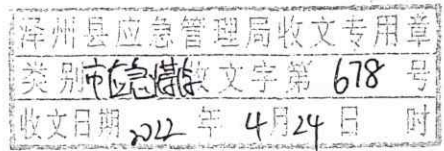 泽州县应急管理局收文专用章
类别市应急煤 收文字第 678 号
收文日期 2022 年 4月24日 时